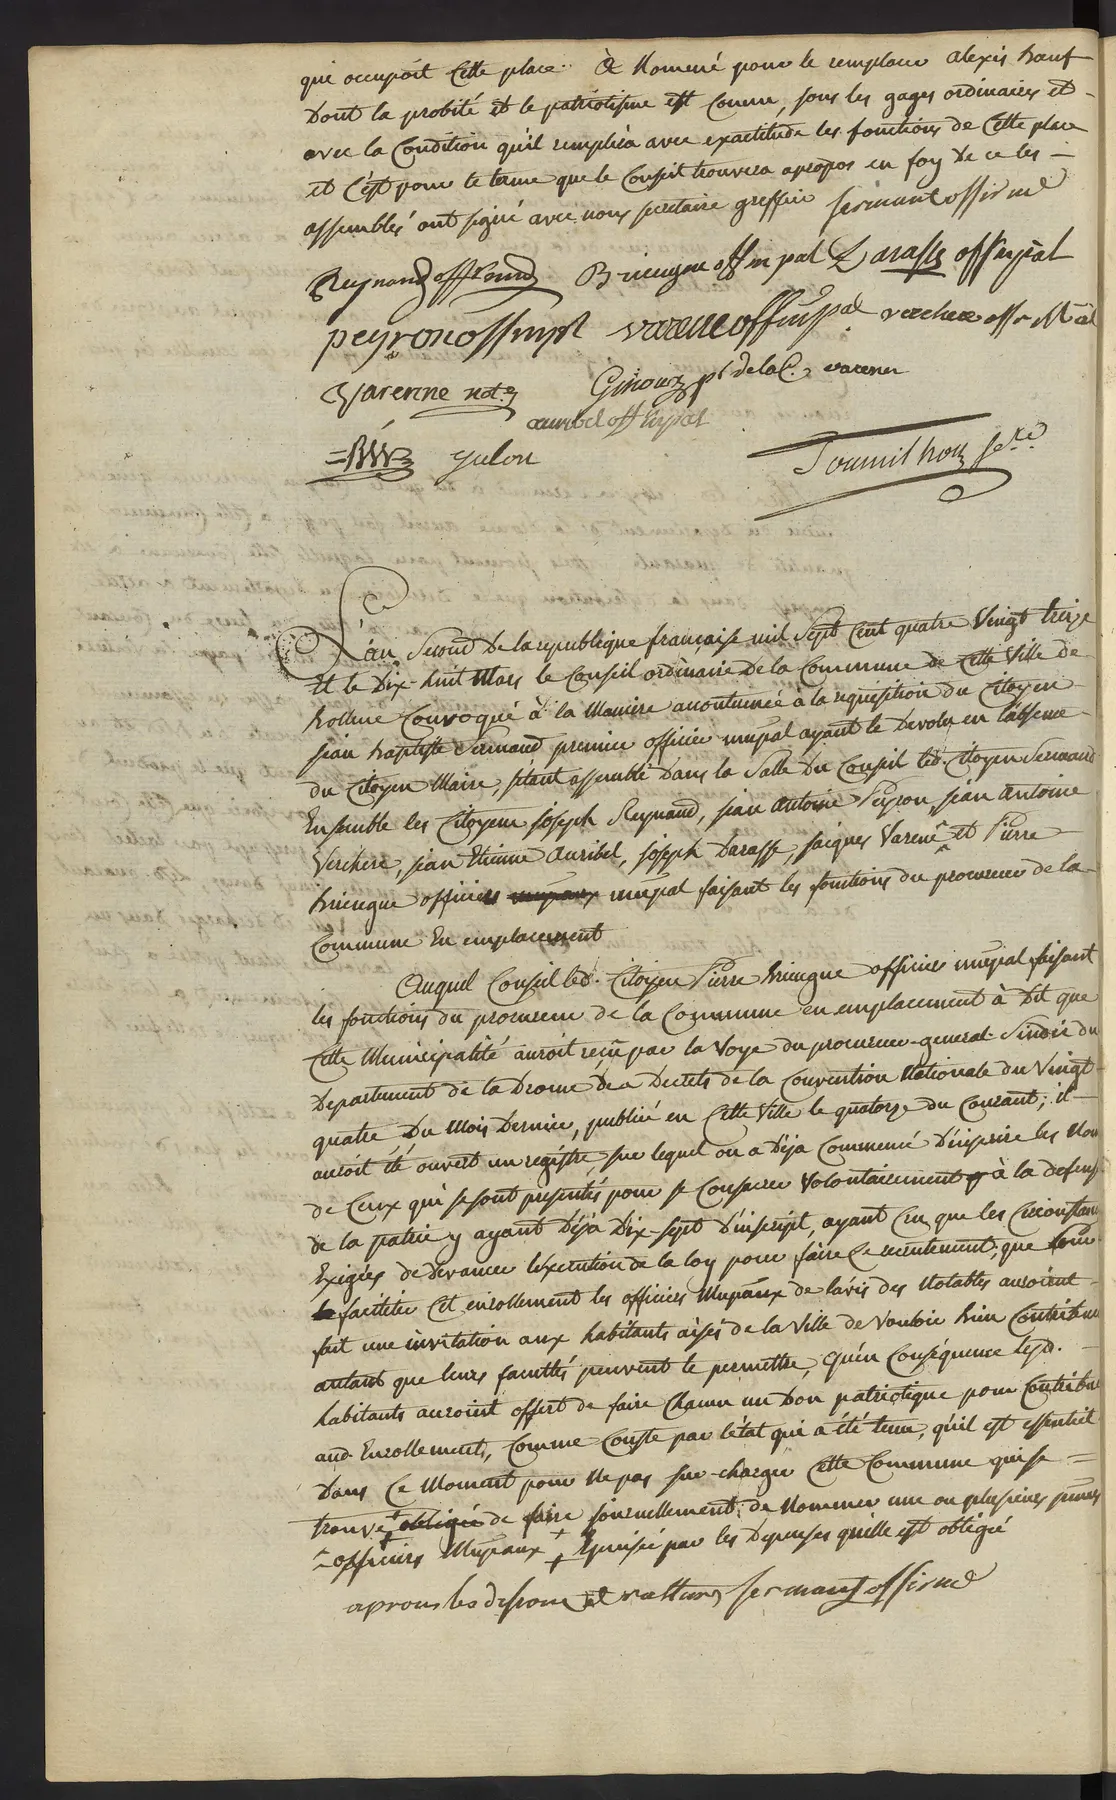 qui occupoit Cette place. à Nommé pour le remplacer alexis
Dont la probité et le patriotisme est Connu, sous les gages ordinaires et
avec la Condition qu'il remplira avec exactitude les fonctions de Cette place
et C'est pour le terme que le Conseil trouvera apropos en foy De ce les
assemblés ont signé avec nous secretaire greffier sermant
Reynaud Brieugne off mpal Darasse off mpal
peyron off mpl varene off mpal verchere off
Varenne not. Ginoux pr de la C. varene
auribel off mpal
Julou Soumilhou sre.
L'an Second De la republique française mil sept Cent quatre Vingt treize
Et le Dix-huit Mars le Conseil ordinaire De la Commune de Cette Ville de
bollene Convoqué à la Maniere accoutumée à la requisition du Citoyen
jean baptiste Sermand, premier officier mupal ayant le Devolu en l'absence
du Citoyen Maire, s'étant assemblé Dans la Salle Du Conseil led. Citoyen Sermand
Ensemble les Citoyens joseph Reynaud, jean Antoine Peyron, jean Antoine
Verchere, jean Etienne Auribel, joseph Darasse, jacques Varene et Pierre
brieugne officiers mupaux mupal faisant les fonctions du procureur de la
Commune En emplacement
Auquel Conseil led. Citoyen Pierre brieugne officier mupal faisant
les fonctions du procureur de la Commune en emplacement à Dit que
Cette Municipalité auroit reçu par la Voye du procureur-general-Sindic du
Departement de la Drome Des Decrets de la Convention Nationale du Vingt
quatre Du Mois Dernier, publié en Cette Ville le quatorze du Courant; il
auroit été ouvert un registre, sur lequel on a Déja Commencé D'inscrire les Nom
de Ceux qui se sont presentés pour se Consacrer Volontairement à la defense
de la patrie y ayant Déja Dix-sept D'inscript, ayant Cru que les Circonstan
Exigées de devancer l'execution de la loy pour faire Ce recrutement; que pour
faciliter Cet enrollement les officiers Mupaux de l'avis des Notables auroient
fait une invitation aux habitants aisés de la Ville de Vouloir bien Contribuer
autant que leurs facultés peuvent le permettre, qu'en Conséquence lesd.
habitants auroint offert de faire Chacun un Don patriotique pour Contribu
aud Enrollement, Comme Conste par l'état qui a été tenu, qu'il est essentiel
Dans Ce Moment pour Ne pas sur-charger Cette Commune qui se
trouve obligée de faire journellement de Nommer une ou plusieurs
officiers Mupaux Epuisée par les Depenses qu'elle est obligée
aprouvé les dessous et ratturs sermant